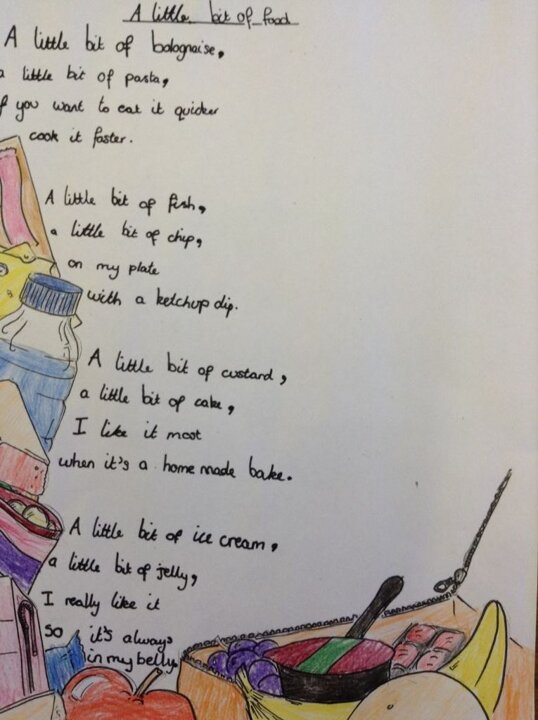 A little bit of food
A little bit of bolognaise,
a little bit of pasta,
if you want to eat it quicker
cook it faster.
A little bit of fish,
a little bit of chip,
on my plate
with a ketchup dip.
A little bit of custard,
a little bit of cake,
I like it most
when it's a home made bake.
A little bit of ice cream,
a little bit of jelly,
I really like it
so it's always
in my belly.